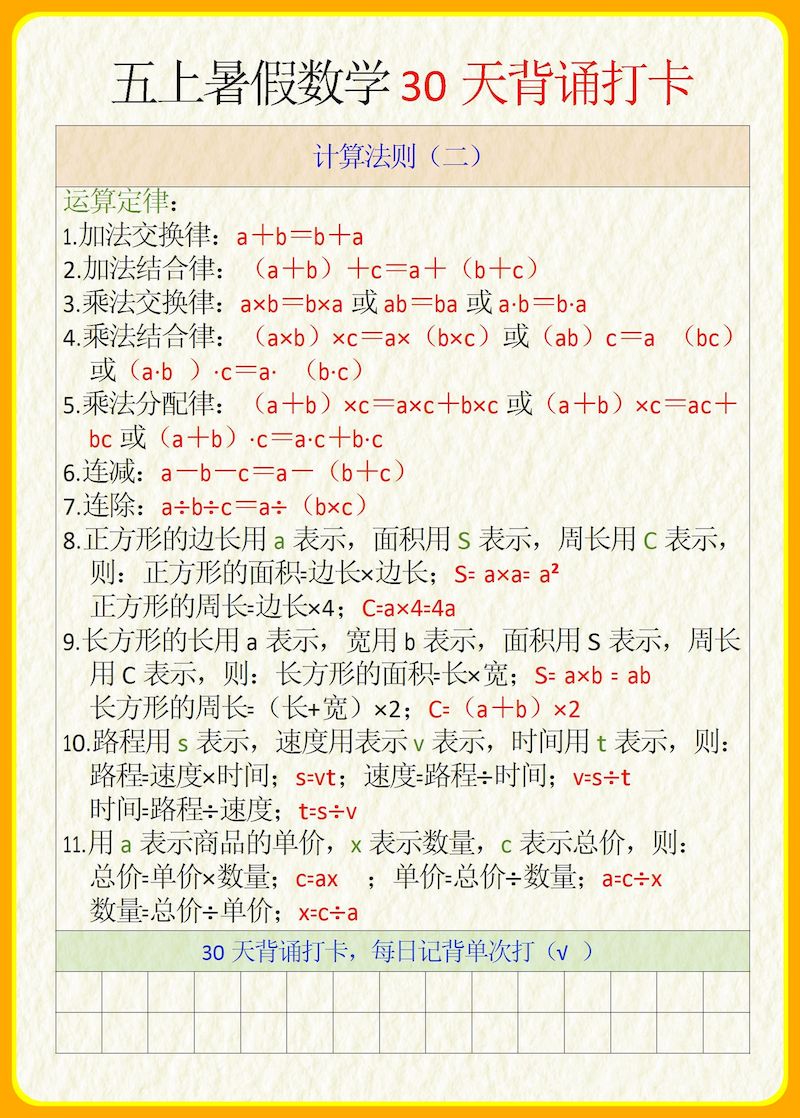 五上暑假数学 30 天背诵打卡
计算法则（二）
运算定律：
1.加法交换律：a＋b＝b＋a
2.加法结合律：（a＋b）＋c＝a＋（b＋c）
3.乘法交换律：a×b＝b×a 或 ab＝ba 或 a·b＝b·a
4.乘法结合律：（a×b）×c＝a×（b×c）或（ab）c＝a （bc）
或（a·b ）·c＝a· （b·c）
5.乘法分配律：（a＋b）×c＝a×c＋b×c 或（a＋b）×c＝ac＋
bc 或（a＋b）·c＝a·c＋b·c
6.连减：a－b－c＝a－（b＋c）
7.连除：a÷b÷c＝a÷（b×c）
8.正方形的边长用 a 表示，面积用 S 表示，周长用 C 表示，
则：正方形的面积=边长×边长；S= a×a= a²
正方形的周长=边长×4；C=a×4=4a
9.长方形的长用 a 表示，宽用 b 表示，面积用 S 表示，周长
用 C 表示，则：长方形的面积=长×宽；S= a×b = ab
长方形的周长=（长+宽）×2；C=（a＋b）×2
10.路程用 s 表示，速度用表示 v 表示，时间用 t 表示，则：
路程=速度×时间；s=vt；速度=路程÷时间；v=s÷t
时间=路程÷速度；t=s÷v
11.用 a 表示商品的单价，x 表示数量，c 表示总价，则：
总价=单价×数量；c=ax ；单价=总价÷数量；a=c÷x
数量=总价÷单价；x=c÷a
30 天背诵打卡，每日记背单次打（√ ）